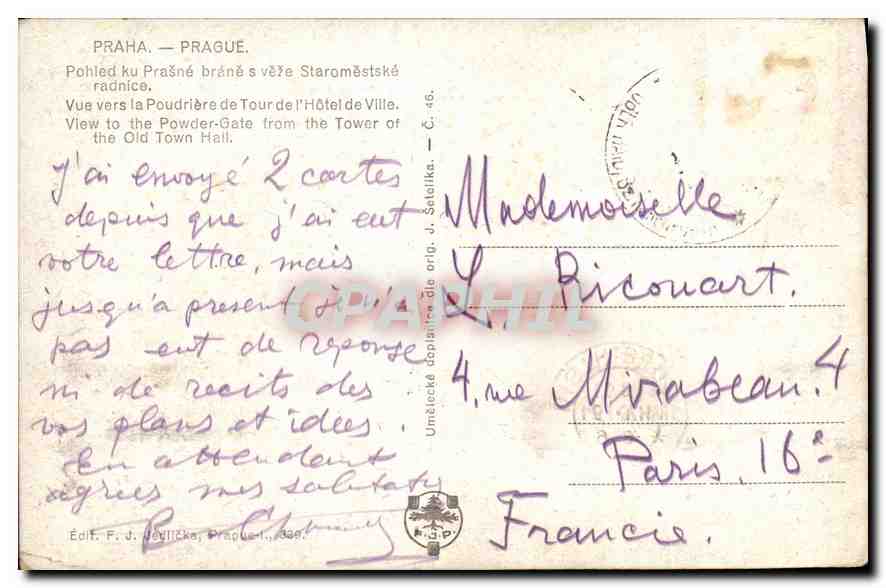 PRAHA. — PRAGUE.
Pohled ku Prašné bráně s věže Staroměstské
radnice.
Vue vers la Poudrière de Tour de l'Hôtel de Ville.
View to the Powder-Gate from the Tower of
the Old Town Hall.
J'ai envoyé 2 cartes
depuis que j'ai eut
votre lettre, mais
jusqu'a present je n'ai
pas eut de reponse
ni de recits des
vos plans et idées.
En attendant
agrées mes salutats
Edit. F. J. Jedlička, Prague-I., 339.
Umělecké dopisnice dle orig. J. Šetelíka. — Č. 46.
Mademoiselle
L. Ricouart.
4, rue Mirabeau. 4
Paris, 16e
Francie.
CPAPHIL